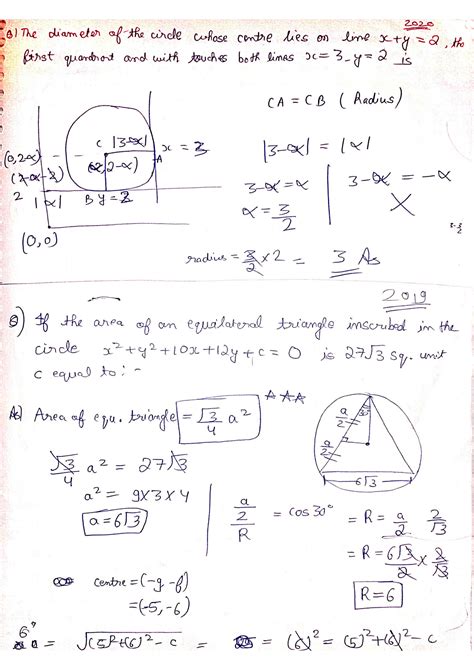 2020
Q) The diameter of the circle whose centre lies on line x+y = 2, the
first quadrant and with touches both lines x=3, y=2 is
CA = CB ( Radius)
C |3-α|
x = 3
A
(0, 2-α)
(α, 2-α)
|3-α| = |α|
2 |α| B y = 2
3-α = α | 3-α = -α
α = 3/2
(0,0)
radius = 3/2 × 2 = 3 As
2019
Q) If the area of an equilateral triangle inscribed in the
circle x²+y²+10x+12y+c = 0 is 27√3 sq. unit
c equal to : -
A) Area of equ. triangle = √3/4 a²
AAA
√3/4 a² = 27√3
a² = 9×3×4
a = 6√3
a/2
a/2
30°
6√3
a/2 / R = cos30° = R = a/2 2/√3
= R = 6√3/2 × 2/√3
R = 6
centre = (-g -f)
= (-5, -6)
= √(5)²+(6)² - c = (6)² = (5)²+(6)² - c